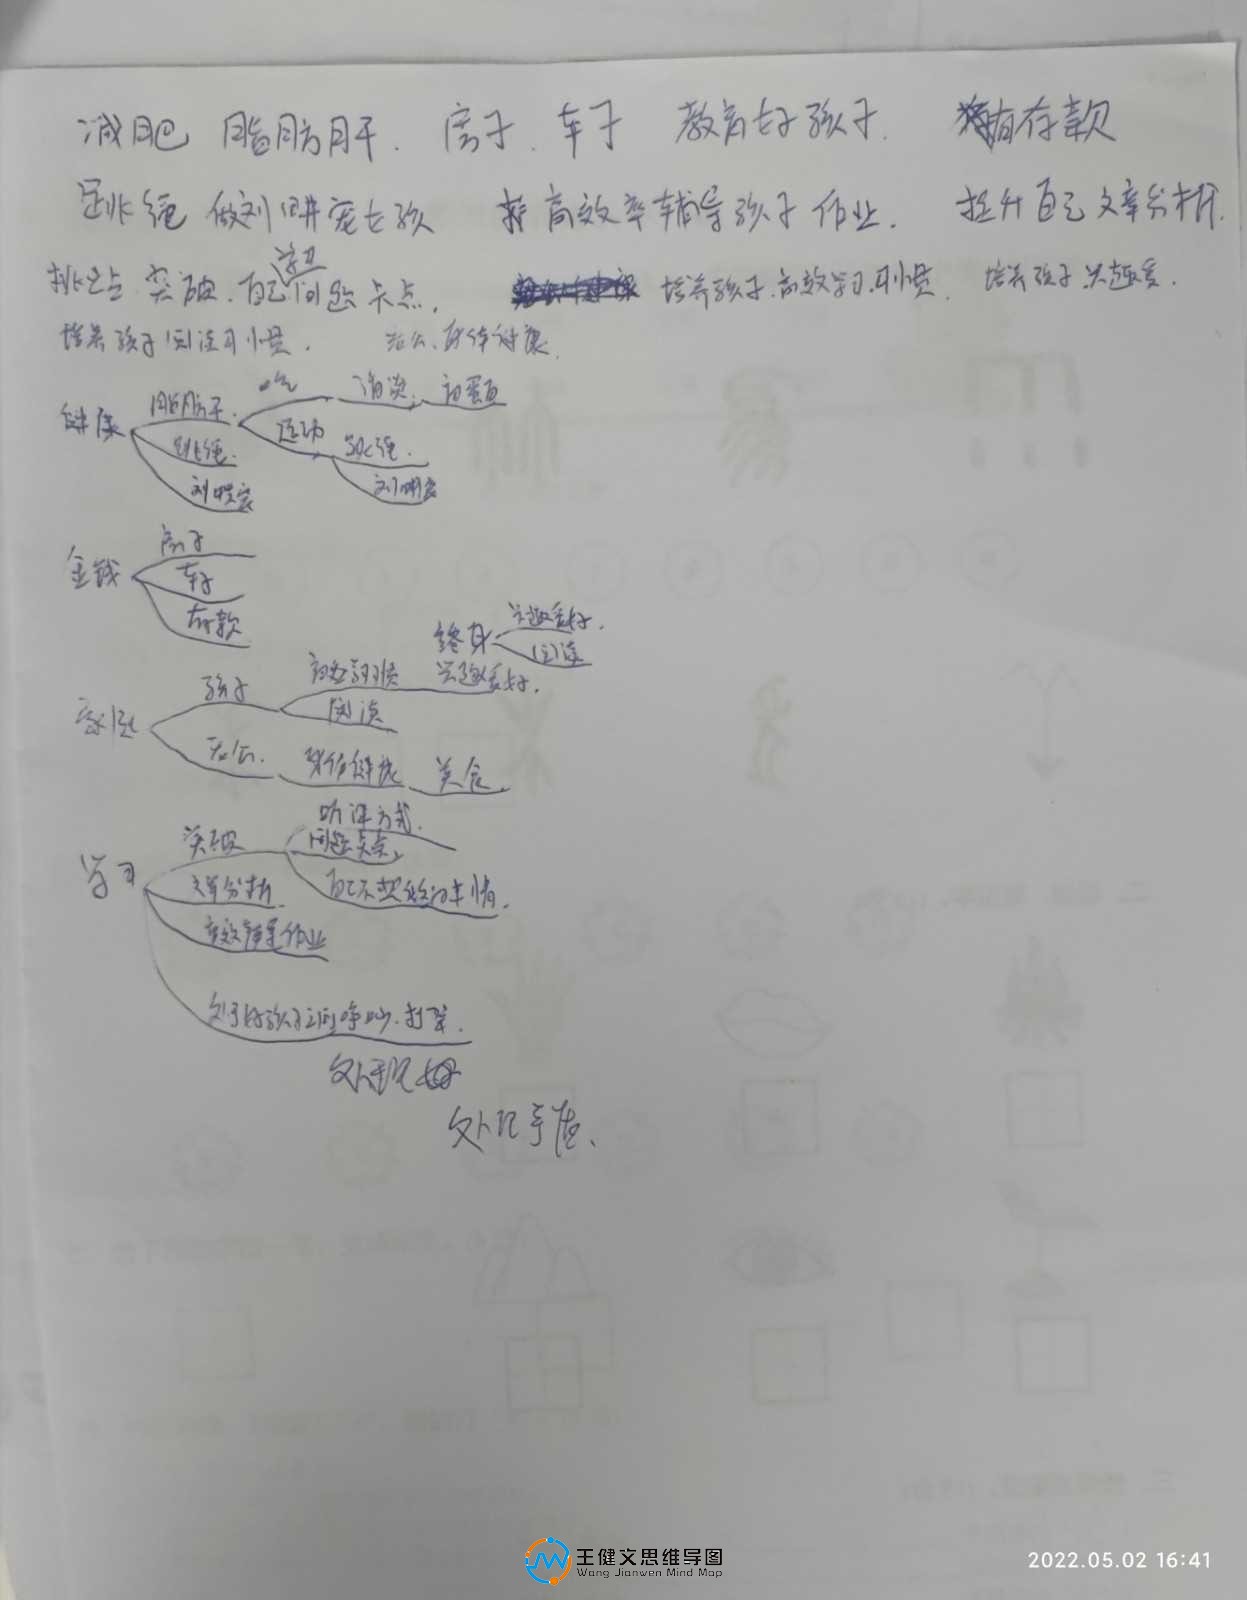 减肥 脂肪肝. 房子. 车子 教育好孩子. 有存款
跳绳 做刘畊宏女孩 高效率辅导孩子作业. 提升自己文章分析.
学习
突破.自己问题卡点. 培养孩子.高效学习习惯. 培养孩子兴趣爱
培养孩子阅读习惯. 老公.身体健康.
吃 清淡. 蛋白
健康 脂肪肝.
运动 跳绳.
跳绳.
刘畊宏 刘畊宏
房子
金钱 车子
存款
兴趣爱好.
终身
阅读
孩子 学习习惯 兴趣爱好.
阅读
家庭
老公. 身体健康 美食.
听课方式.
突破 问题卡点
学习
文章分析. 自己不想做的事情.
高效辅导作业
处于好孩子之间争吵.打架.
处理
处理
王健文思维导图
Wang Jianwen Mind Map
2022.05.02 16:41